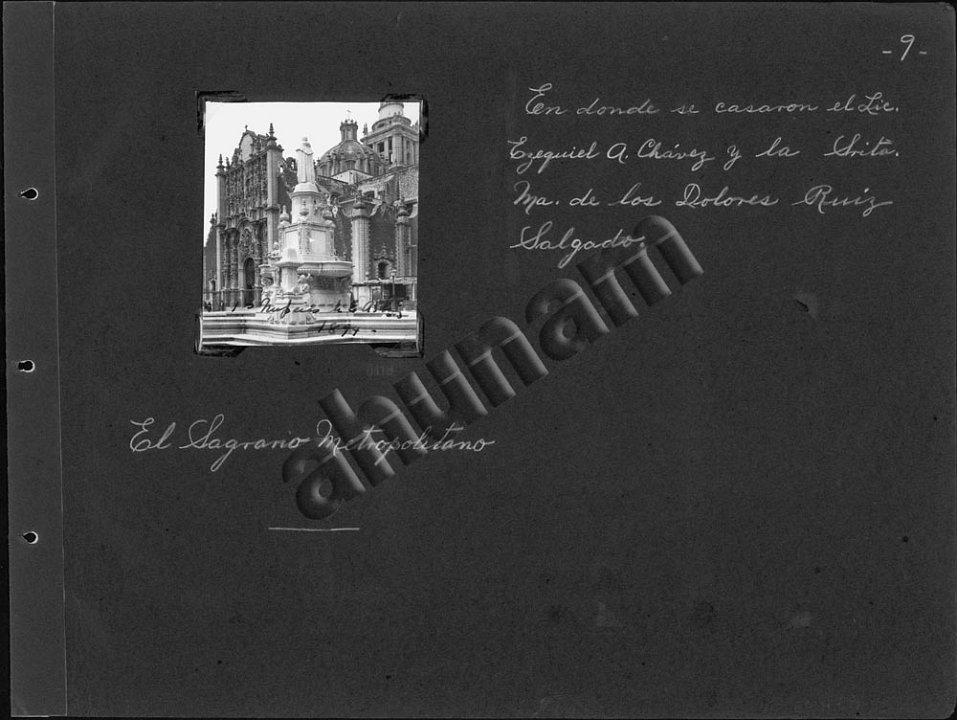 - 9 -
En donde se casaron el Lic.
Ezequiel A. Chávez y la Srita.
Ma. de los Dolores Ruiz
Salgado.
1891
El Sagrario Metropolitano
ahunam